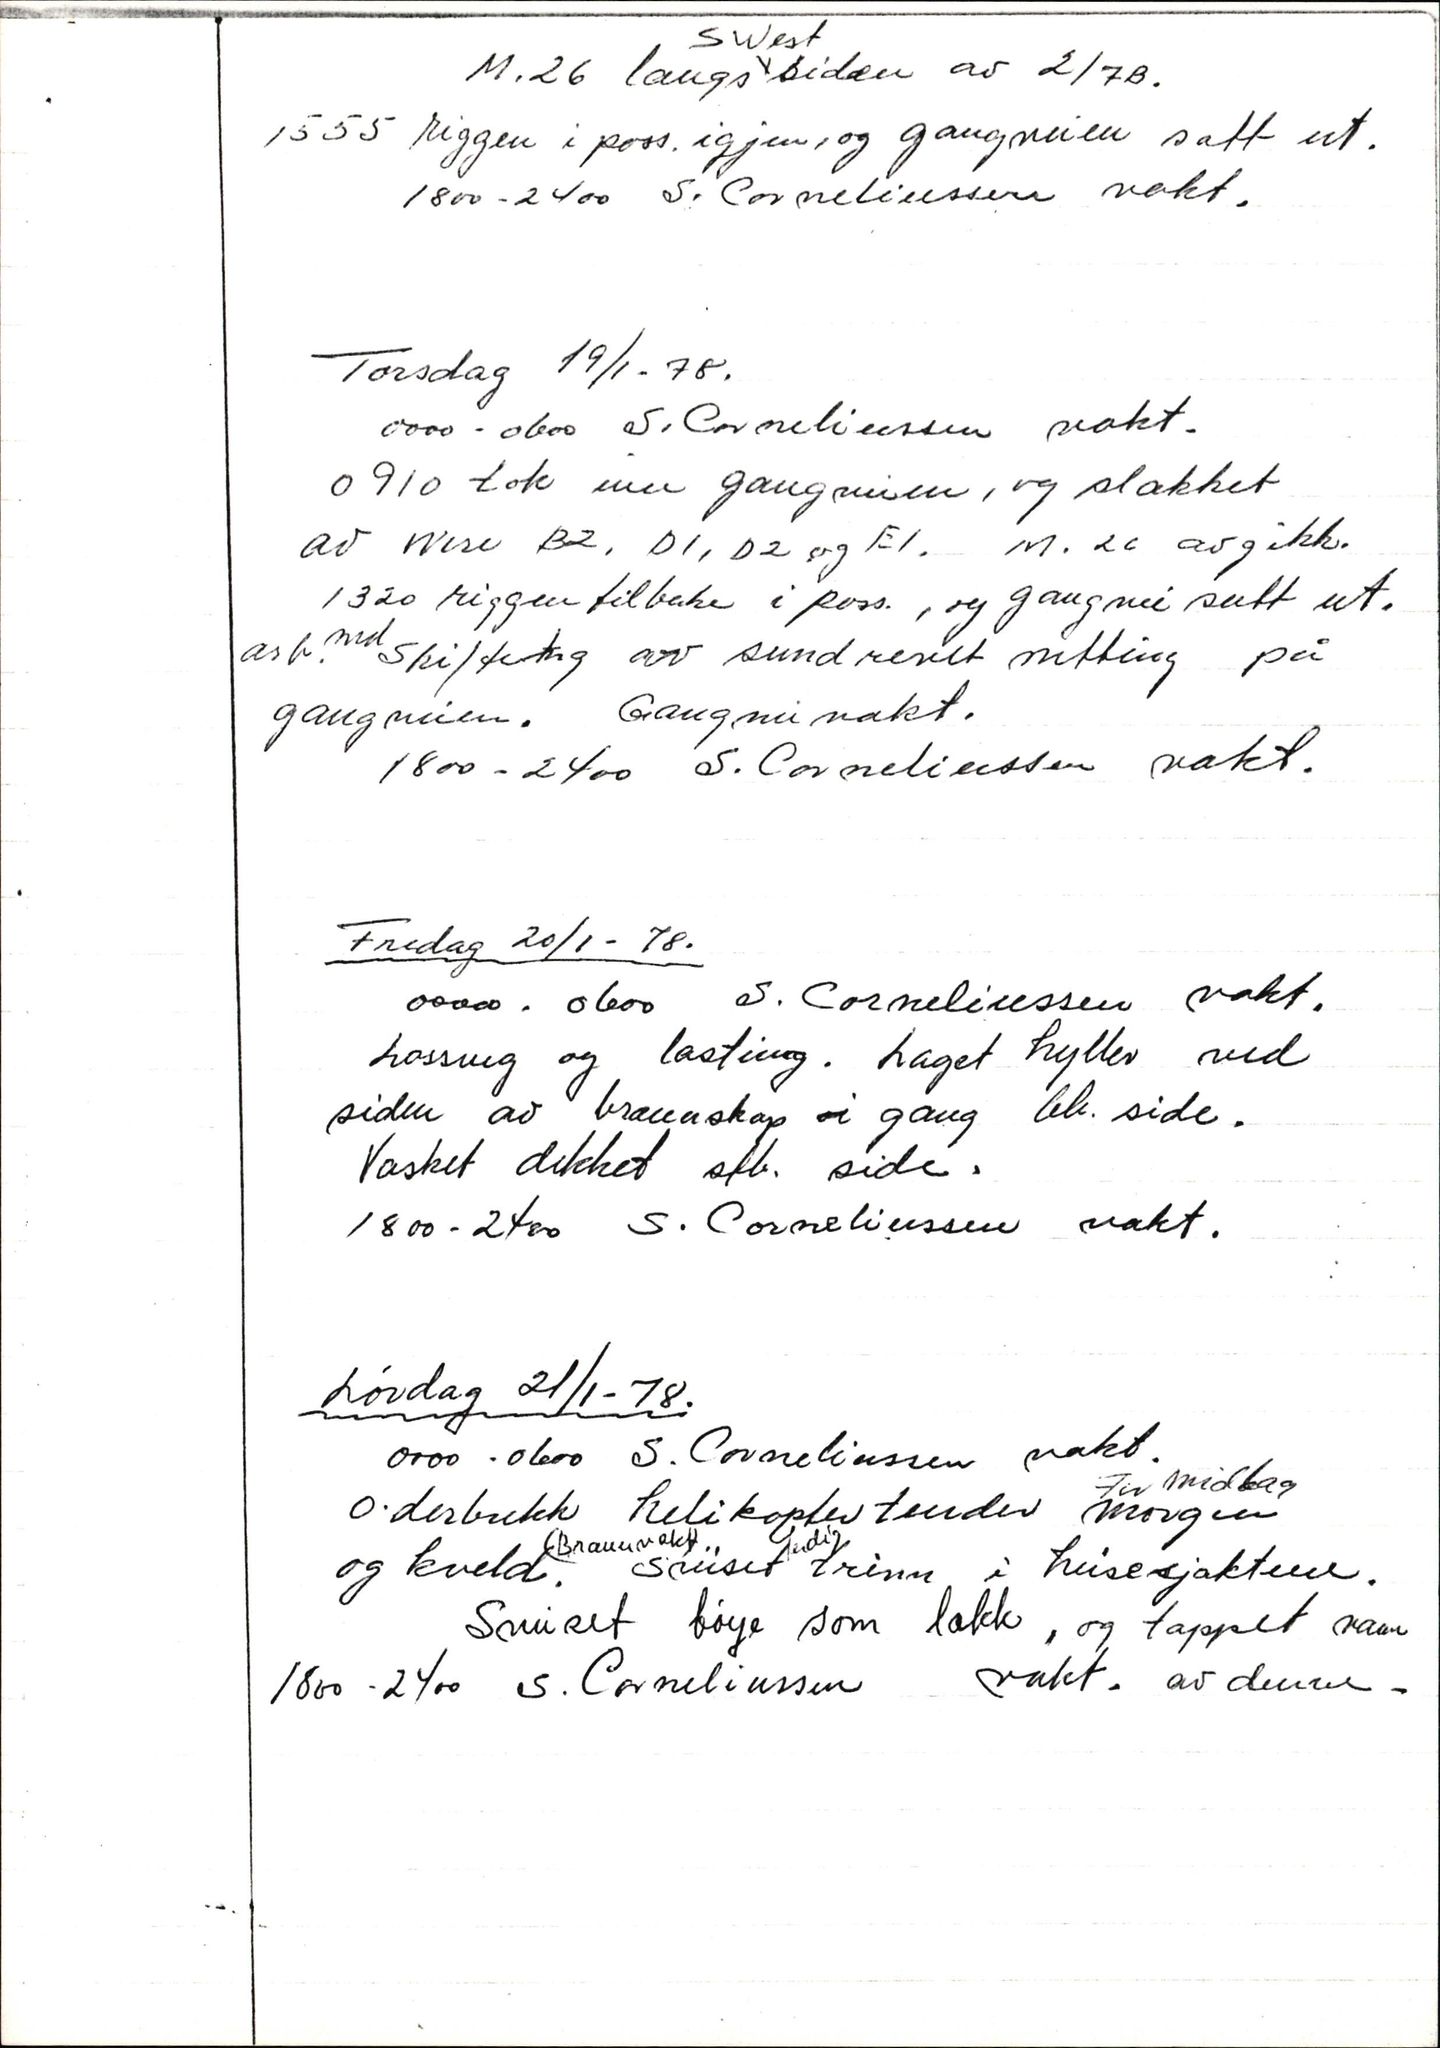 S West
M. 26 langs siden av 2/7B.
1555 riggen i poss. igjen, og gangveien satt ut.
1800 - 2400 S. Corneliussen vakt.
Torsdag 19/1 - 78.
0000 - 0600 S. Corneliussen vakt.
0910 tok inn gangveien, og slakket
av Wire B2, D1, D2 og E1. M. 26 avgikk.
1320 riggen tilbake i poss., og gangvei satt ut.
arb. md Skifting av sundrevet netting på
gangveien. Gangveivakt.
1800 - 2400 S. Corneliussen vakt.
Fredag 20/1 - 78.
0000 - 0600 S. Corneliussen vakt.
Lossing og lasting. Laget hyller ved
siden av brannskap i gang bb. side.
Vasket dekket stb. side.
1800 - 2400 S. Corneliussen vakt.
Lørdag 21/1 - 78.
0000 - 0600 S. Corneliussen vakt.
For Middag
helikopter tender Morgen
(Brannvakt)
og kveld. trinn i heisesjaktene.
bøye som lakk, og tappet vann
1800 - 2400 S. Corneliussen vakt. av denne -